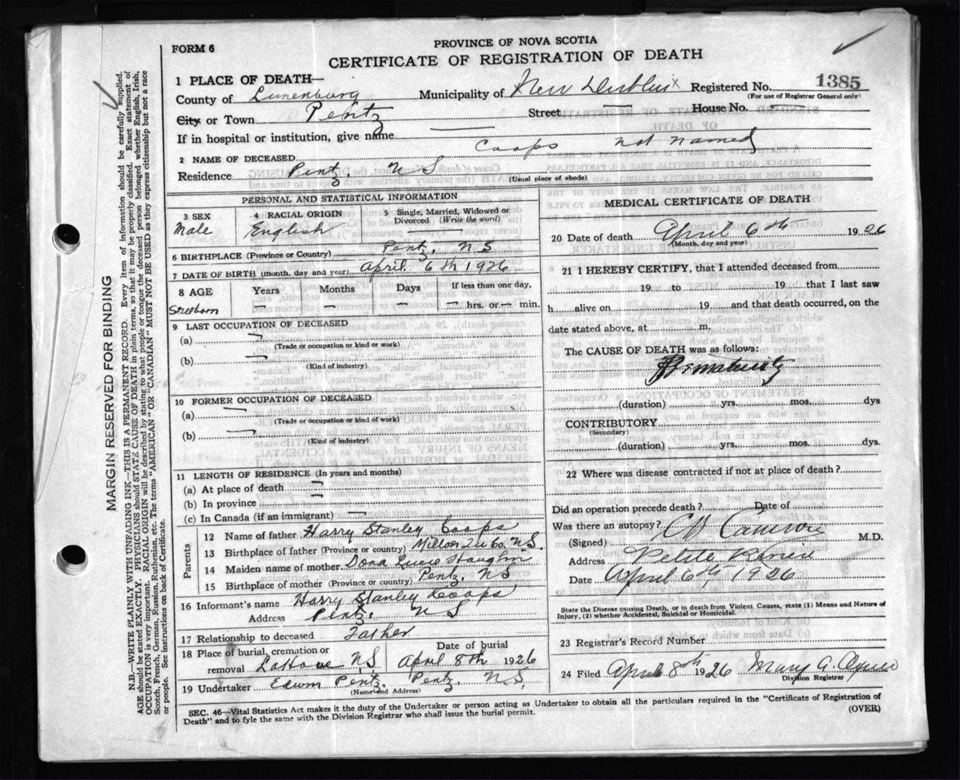 FORM 6
PROVINCE OF NOVA SCOTIA
CERTIFICATE OF REGISTRATION OF DEATH
1 PLACE OF DEATH—
County of Lunenburg Municipality of New Dublin Registered No. 1385
(For use of Registrar General only)
City or Town Pentz Street — House No. —
If in hospital or institution, give name —
2 NAME OF DECEASED Coops not named
Residence Pentz, N S
(Usual place of abode)
PERSONAL AND STATISTICAL INFORMATION
3 SEX
Male
4 RACIAL ORIGIN
English
5 Single, Married, Widowed or Divorced (Write the word)
6 BIRTHPLACE (Province or Country) Pentz, N S
7 DATE OF BIRTH (month, day and year) April 6th 1926
8 AGE Years Months Days If less than one day,
Stillborn — — — — hrs. or — min.
9 LAST OCCUPATION OF DECEASED
(a) —
(Trade or occupation or kind or work)
(b) —
(Kind of industry)
10 FORMER OCCUPATION OF DECEASED
(a) —
(Trade or occupation or kind of work)
(b) —
(Kind of Industry)
11 LENGTH OF RESIDENCE (In years and months)
(a) At place of death —
(b) In province —
(c) In Canada (if an immigrant) —
Parents
12 Name of father Harry Stanley Coops
13 Birthplace of father (Province or country) Milton Qu Co, N.S.
14 Maiden name of mother Dora
15 Birthplace of mother (Province or country) Pentz, N S
16 Informant's name Harry Stanley Coops
Address Pentz, N S
17 Relationship to deceased Father
18 Place of burial, cremation or removal LaHave N S Date of burial April 8th 1926
19 Undertaker Edwin Pentz, Pentz, N.S.
(Name and Address)
MEDICAL CERTIFICATE OF DEATH
20 Date of death April 6th 1926
(Month, day and year)
21 I HEREBY CERTIFY, that I attended deceased from
19 to 19 that I last saw
h alive on 19 and that death occurred, on
date stated above, at m.
The CAUSE OF DEATH was as follows:
Prematurity
(duration) yrs. mos. dys
CONTRIBUTORY
(Secondary)
(duration) yrs. mos. dys.
22 Where was disease contracted if not at place of death?
Did an operation precede death? Date of
Was there an autopsy?
(Signed) Cameron M.D.
Address Petite Riviere
Date April 6th, 1926
State the Disease causing Death, or in death from Violent Causes, state (1) Means and Nature of Injury, (2) whether Accidental, Suicidal or Homicidal.
23 Registrar's Record Number
24 Filed April 8th 1926 Mary G.
Division Registrar
SEC. 46—Vital Statistics Act makes it the duty of the Undertaker or person acting as Undertaker to obtain all the particulars required in the "Certificate of Registration of
Death" and to fyle the same with the Division Registrar who shall issue the burial permit.
(OVER)
MARGIN RESERVED FOR BINDING
N.B. WRITE PLAINLY WITH UNFADING INK—THIS IS A PERMANENT RECORD. Every item of information should be carefully supplied.
AGE should be stated EXACTLY. PHYSICIANS should STATE CAUSE OF DEATH in plain terms, so that it may be properly classified. Exact statement of
OCCUPATION is very important. RACIAL ORIGIN will be described by stating to what people or tongue the deceased person belonged whether English, Irish,
Scotch, French, German, Russian, Ruthenian, etc. The terms "AMERICAN" OR "CANADIAN" MUST NOT BE USED as they express citizenship but not a race
or people. See instructions on back of Certificate.